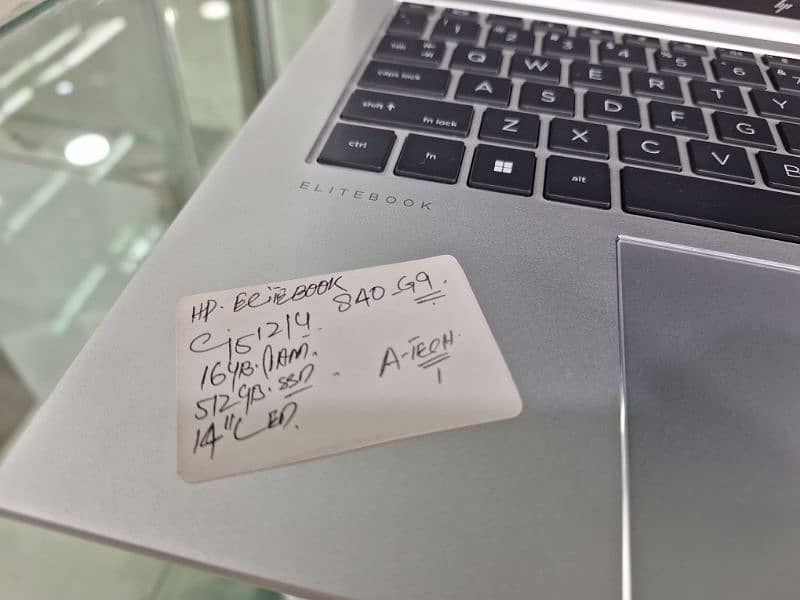 hp
1 2 3 4 5 6 7
tab Q W E R T Y
caps lock A S D F G
shift fn lock Z X C V B
ctrl fn alt
ELITEBOOK
HP. ELITEBOOK 840-G9.
Ci5 12TH
16GB. RAM.
512GB. SSD. A-TECH
14" LED.